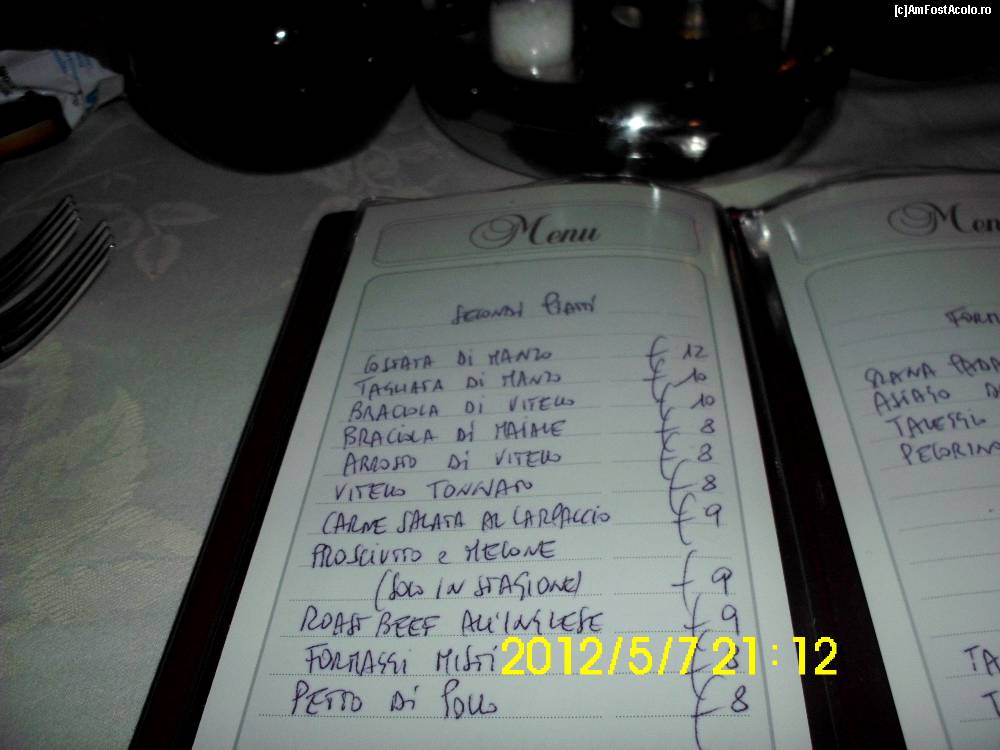 [c]AmFostAcolo.ro
Menu
SECONDI PIATTI
COSTATA DI MANZO € 12
TAGLIATA DI MANZO € 10
BRACIOLA DI VITELLO € 10
BRACIOLA DI MAIALE € 8
ARROSTO DI VITELLO € 8
VITELLO TONNATO € 8
CARNE SALATA AL CARPACCIO € 9
PROSCIUTTO e MELONE
(SOLO IN STAGIONE) € 9
ROAST BEEF ALL'INGLESE € 9
FORMAGGI MISTI € 8
PETTO DI POLLO € 8
2012/5/7 21:12
Men
FORM
GRANA PADA
ASIAGO D
TALEGGIO
PECORINO
TA
T